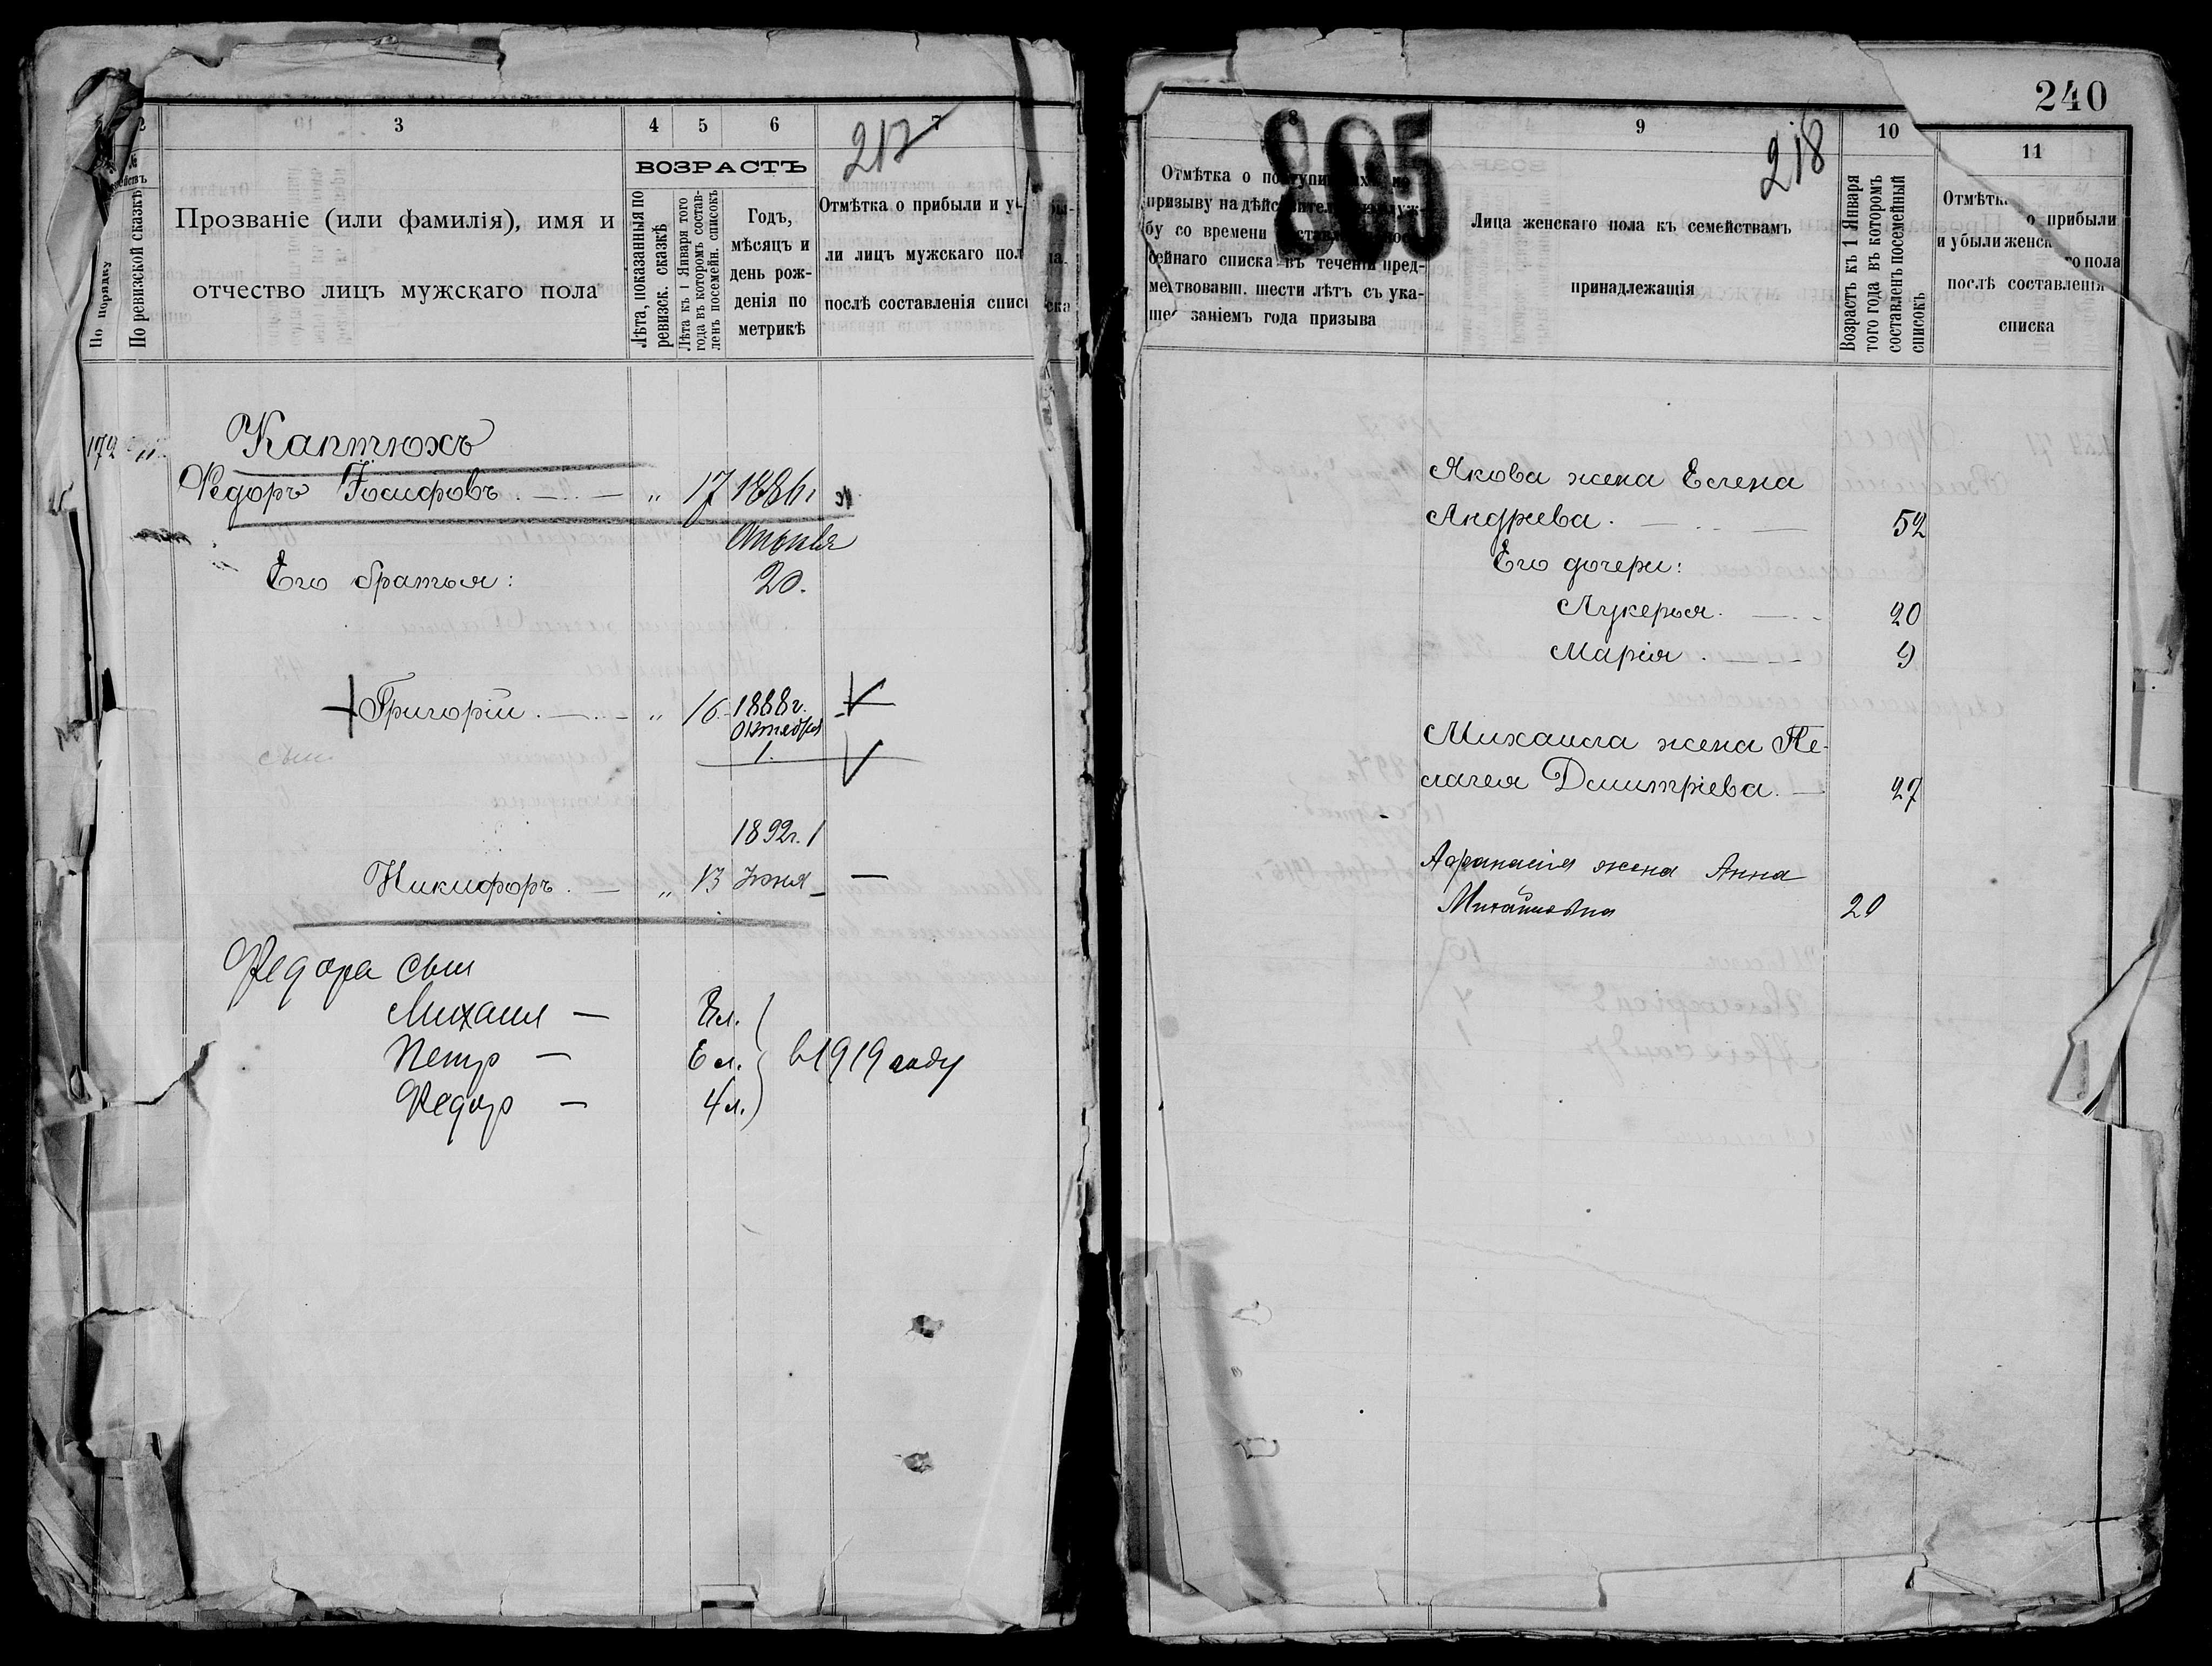 3
4
5
6
7
217
ВОЗРАСТЪ
По порядку
По ревизской сказкѣ
Прозваніе (или фамилія), имя и
отчество лицъ мужскаго пола
Лѣта, показанныя по
ревизск. сказкѣ
Лѣта къ 1 Января того
года въ которомъ состав-
ленъ посемейн. списокъ
Годъ,
мѣсяцъ и
день рож-
денія по
метрикѣ
Отмѣтка о прибыли и у
ли лицъ мужскаго пол
послѣ составленія списка
172
Каптюхъ
Федоръ Іосифовъ „ 17 1886г
20.
Его братья:
Григорій „ 16 1888г.
Октября
1.
1892г.
Никифоръ „ 13 Іюня
Федора сын
Михаил — 8 л.
Петр — 6 л. в 1919 году
Федор — 4 л.
240
8
805
9
218
10
11
Отмѣтка о поступившихъ по
призыву на дѣйствительную служ-
бу со времени
сейнаго списка въ теченіи пред-
шествовавш. шести лѣтъ съ ука-
заніемъ года призыва
Лица женскаго пола къ семействамъ
принадлежащія
Возрастъ къ 1 Января
того года въ которомъ
составленъ посемейный
списокъ
Отмѣтка о прибыли
и убыли женскаго пола
послѣ составленія
списка
Якова жена Елена
Андреева. 52
Его дочери:
Лукерья. 20
Марія. 9
Михаила жена Пе-
лагея Дмитріева. 27
Афанасія жена Анна
Михайловна 20